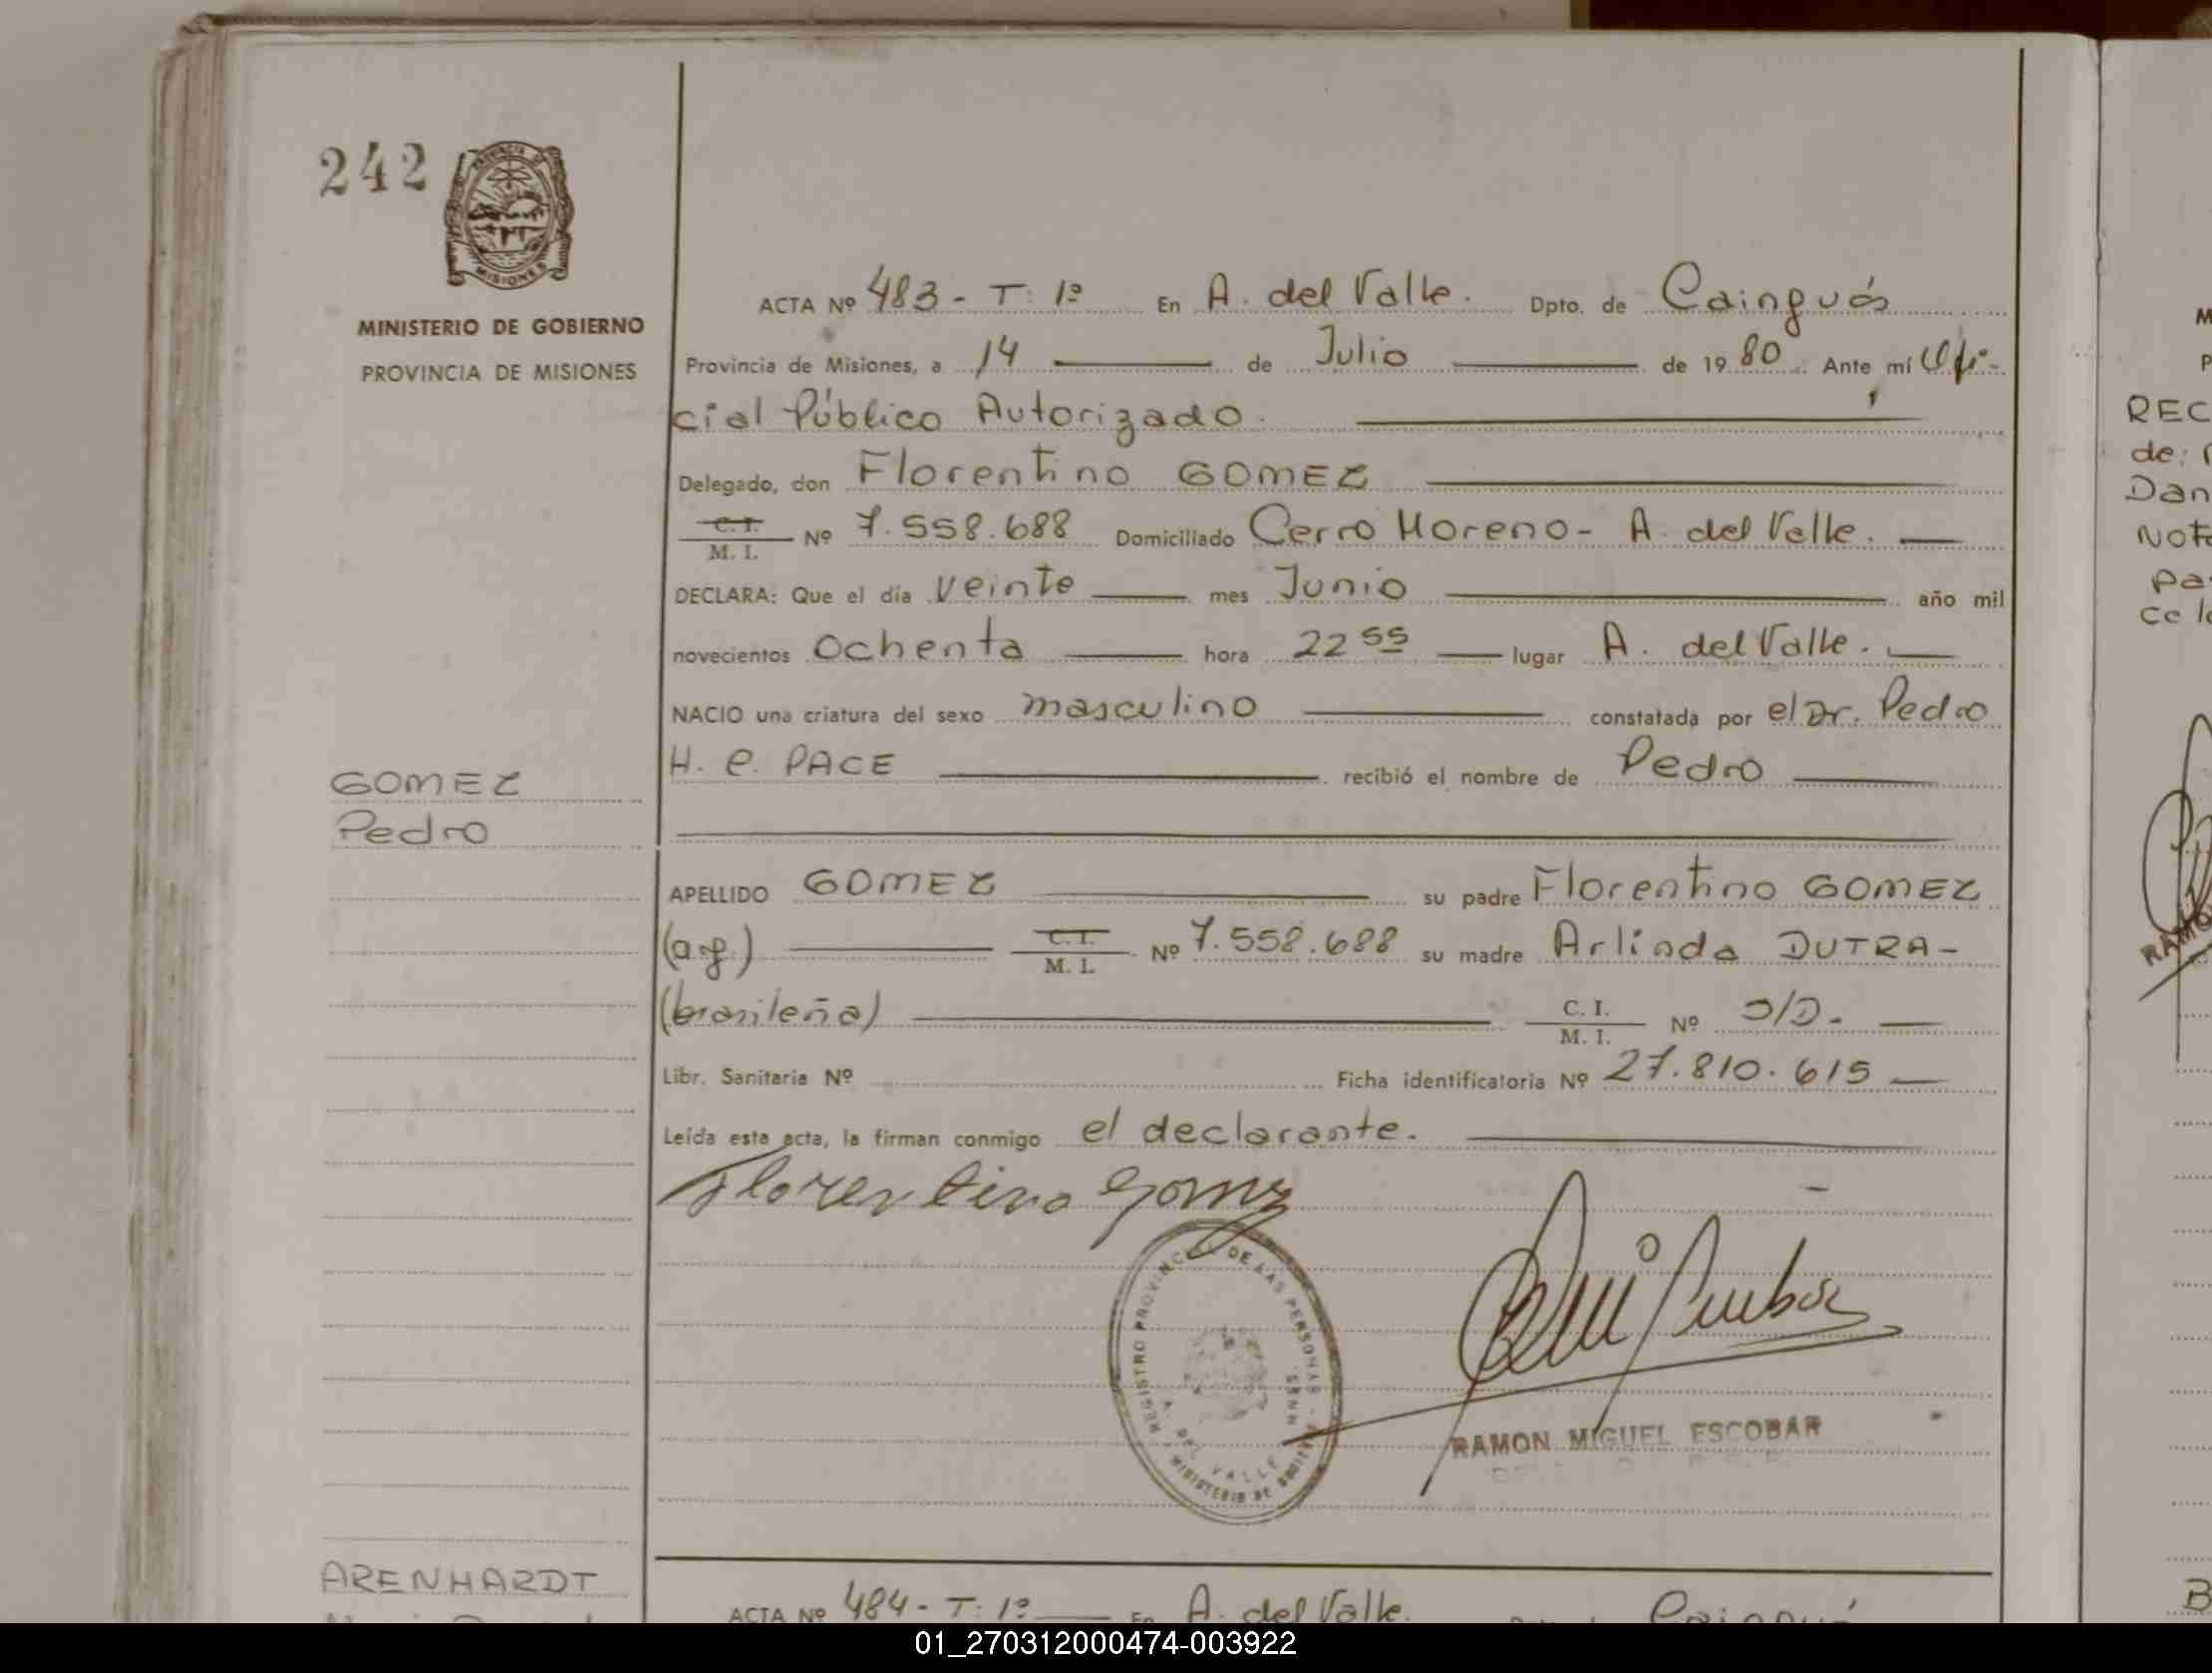 242
PROVINCIA DE
MISIONES
MINISTERIO DE GOBIERNO
PROVINCIA DE MISIONES
ACTA Nº 483 - T: 1º En A. del Valle. Dpto. de Cainguás
Provincia de Misiones, a 14 de Julio de 19 80 Ante mí Ofi-
cial Público Autorizado.
Delegado, don Florentino GOMEZ
C. I. M. I. Nº 7.558.688 Domiciliado Cerro Moreno - A. del Valle.
DECLARA: Que el día veinte mes Junio año mil
novecientos ochenta hora 22 55 lugar A. del Valle.
NACIO una criatura del sexo masculino constatada por el Dr. Pedro
H. C. PACE recibió el nombre de Pedro
GOMEZ
Pedro
APELLIDO GOMEZ su padre Florentino GOMEZ
(arg.) C. I. M. I. Nº 7.558.688 su madre Arlinda DUTRA -
(brasileña) C. I. M. I. Nº S/D. -
Libr. Sanitaria Nº Ficha identificatoria Nº 27.810.615
Leída esta acta, la firman conmigo el declarante.
Florentino Gomez
REGISTRO PROVINCIAL DE LAS PERSONAS
A. DEL VALLE
MINISTERIO DE
RAMON MIGUEL ESCOBAR
ARENHARDT
ACTA Nº 484 - T: 1º En A. del Valle. Cainguá
REC
de:
Dan
Not
pa
ce l
RAMO
B
01_270312000474-003922